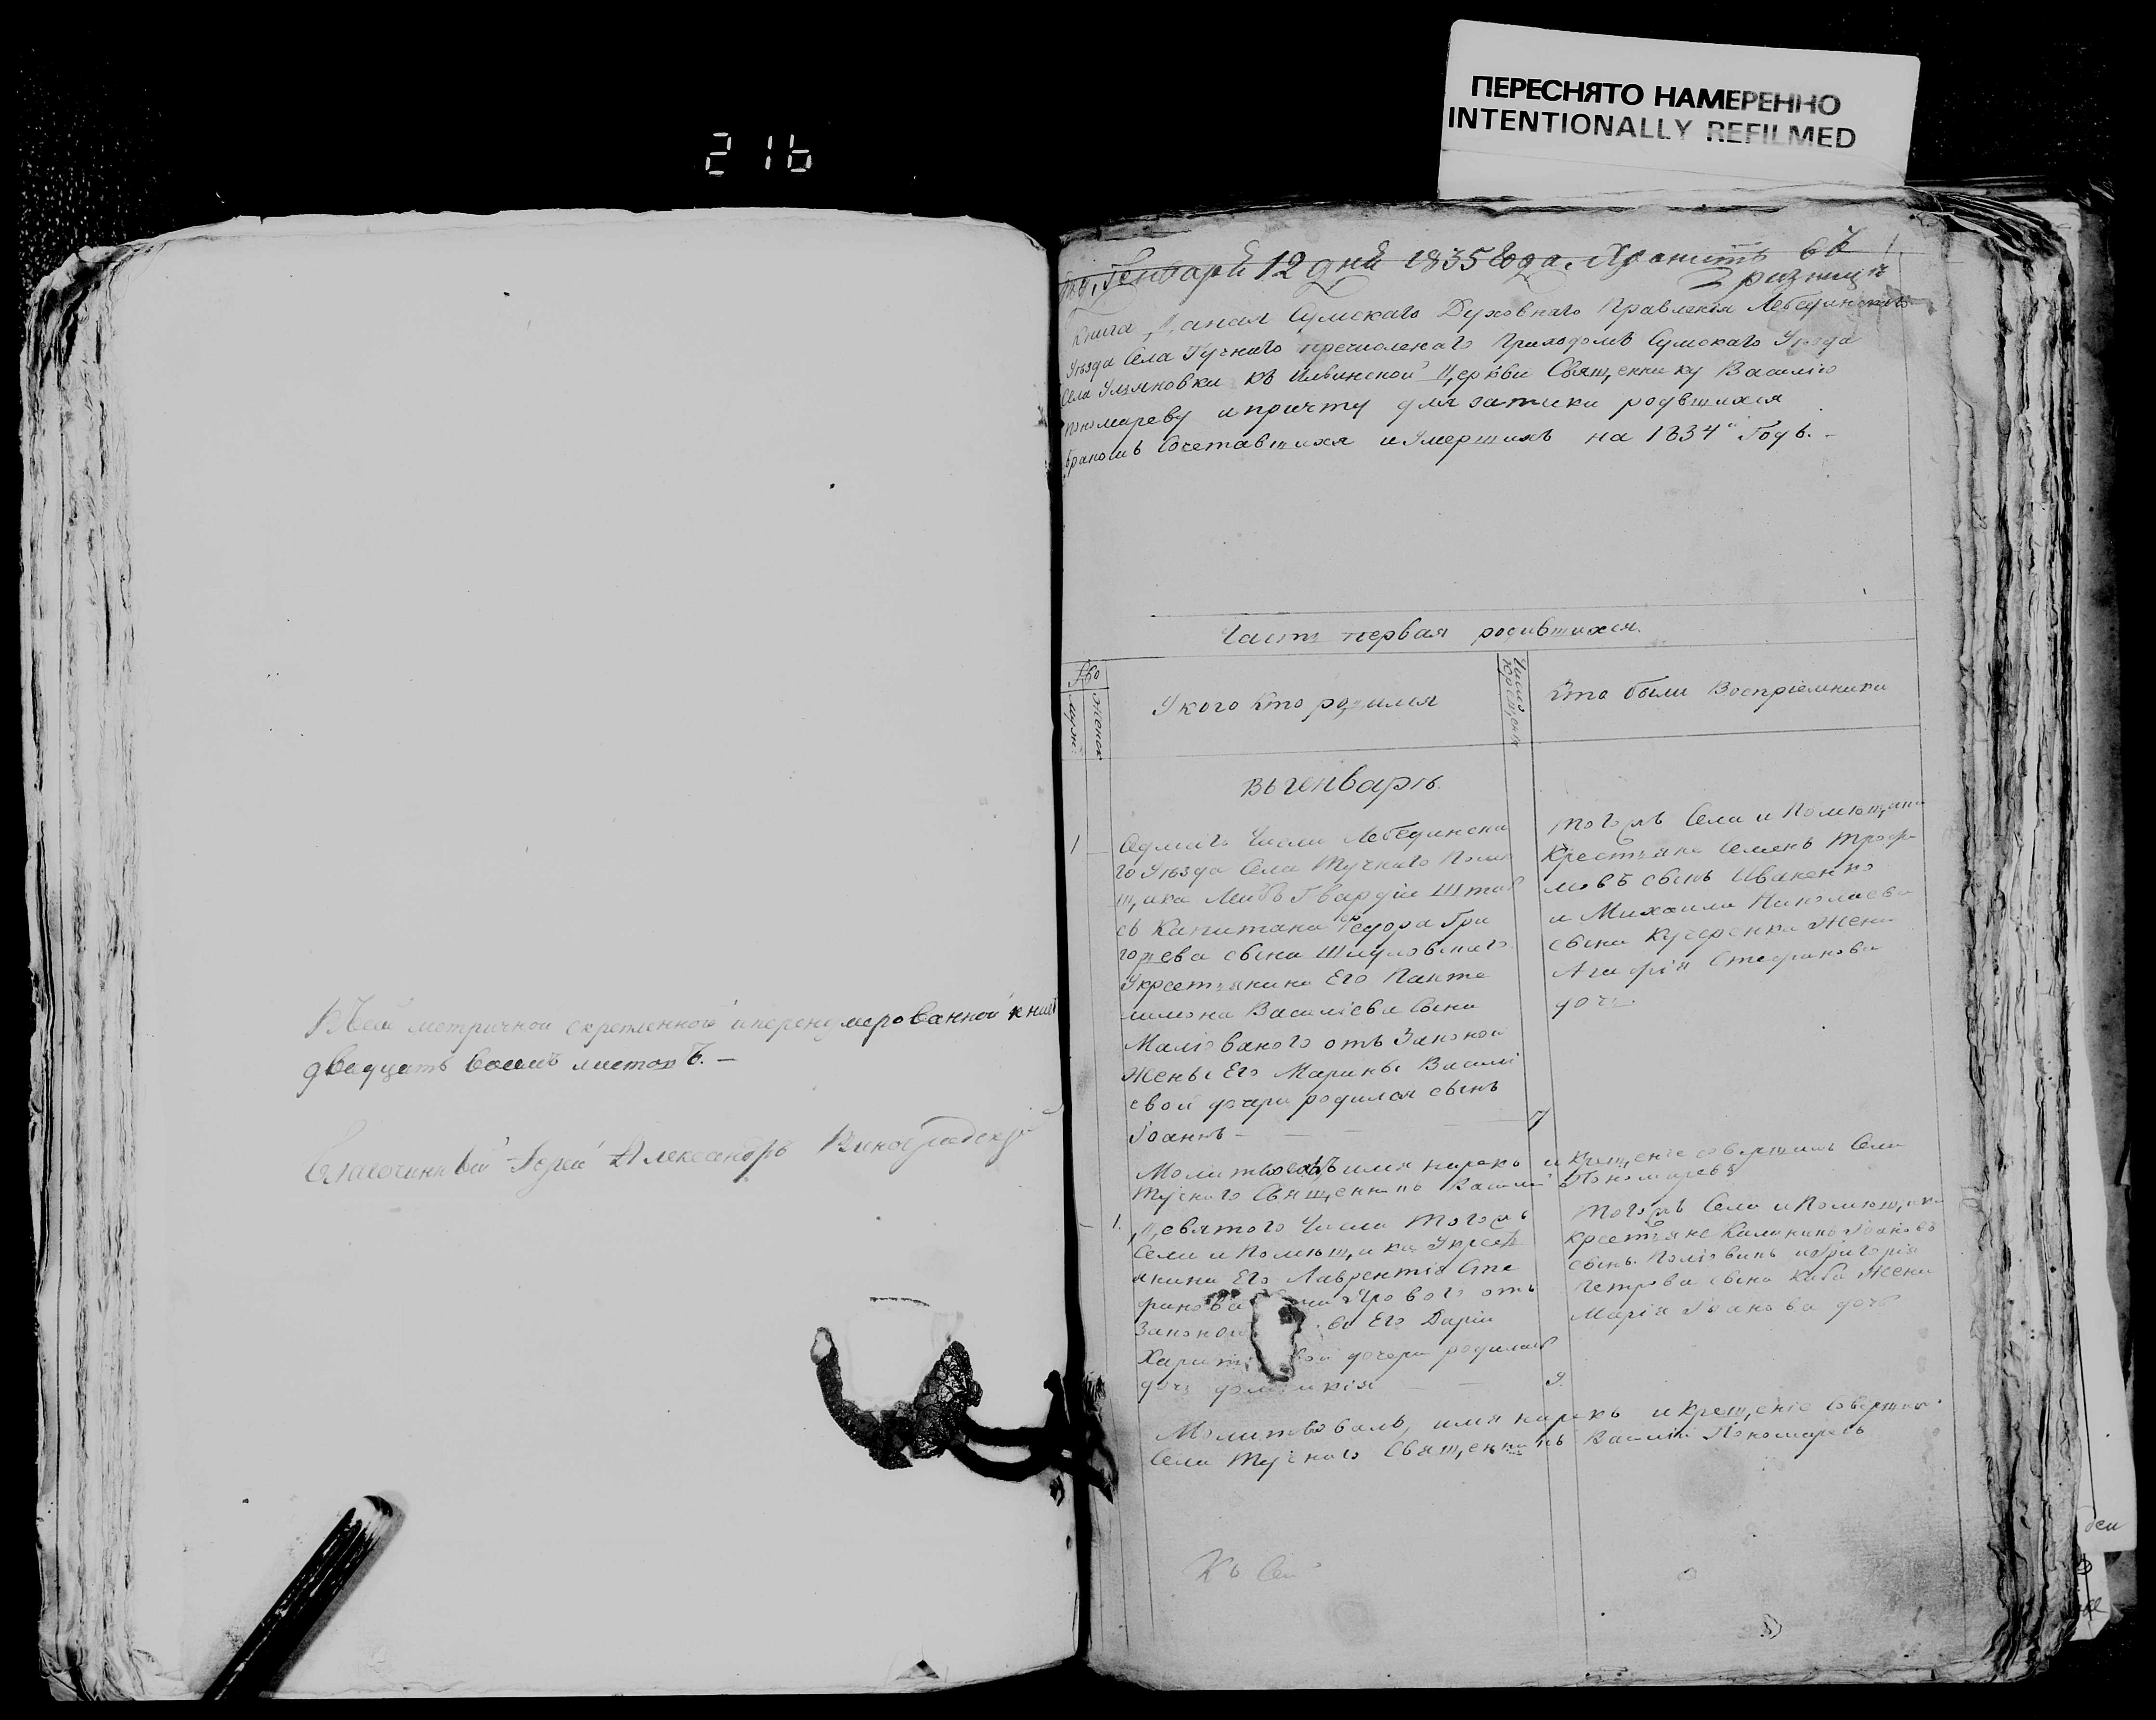 ПЕРЕСНЯТО НАМЕРЕННО
INTENTIONALLY REFILMED
216
Въ сей метричной скрепленной и перенумерованной книге
двадцать восемъ листовъ. —
Благочинный Іерей Александръ Виноградскій
Генваря 12 дня 1835 года. Хранить въ
ризнице
1
Книга Данная Сумскаго Духовнаго Правленія Лебединскаго
Уезда Села Тучнаго Приходомъ Сумскаго Уезда
Села Ульяновки къ Ильинской Церкви Священнику Василію
Пономареву и причту для записки родившихся
бракомъ Сочетавшихся и Умершихъ на 1834й Годъ. —
Часть первая родившихся.
муж: женск
У кого кто родился
Число крещенія
Кто были Воспріемники
Въ генваре
1
Седмаго Числа Лебединска
го Уезда Села Тучнаго Поме
щика Лейбъ Гвардіи Штаб
съ Капитана Федора Гри
горьева сына Шидловскаго
У крестьянина Его Панте
лимона Василіева Сына
Маліованого отъ Законой
Жены Его Марины Василі
евой дочери родился сынъ
Іоаннъ — 7
Тогожъ Села и Помещика
Крестьяне Семенъ Трофи
мовъ сынъ Иваненко
и Михаила Николаева
сына Кучеренка Жена
Агафія Стефанова
дочь.
Молитвовалъ имя нарекъ и крещеніе совершилъ Села
Тучнаго Священникъ Василій Пономаревъ
1.
Девятого Числа Тогожъ
Села и Помещика У крест
янина Его Лаврентія Сте
фанова Ярового отъ
Законой Его Даріи
дочери родилась
дочь Домникія — 9.
Тогожъ Села и Помещика
крестьяне Калиникъ Іоановъ
сынъ и Григорія
Петрова сына Каба Жена
Марія Іоанова дочь
Молитвовалъ, имя нарекъ и крещеніе Совершилъ
Села Тучнаго Священникъ Василій Пономаревъ
Къ Сей